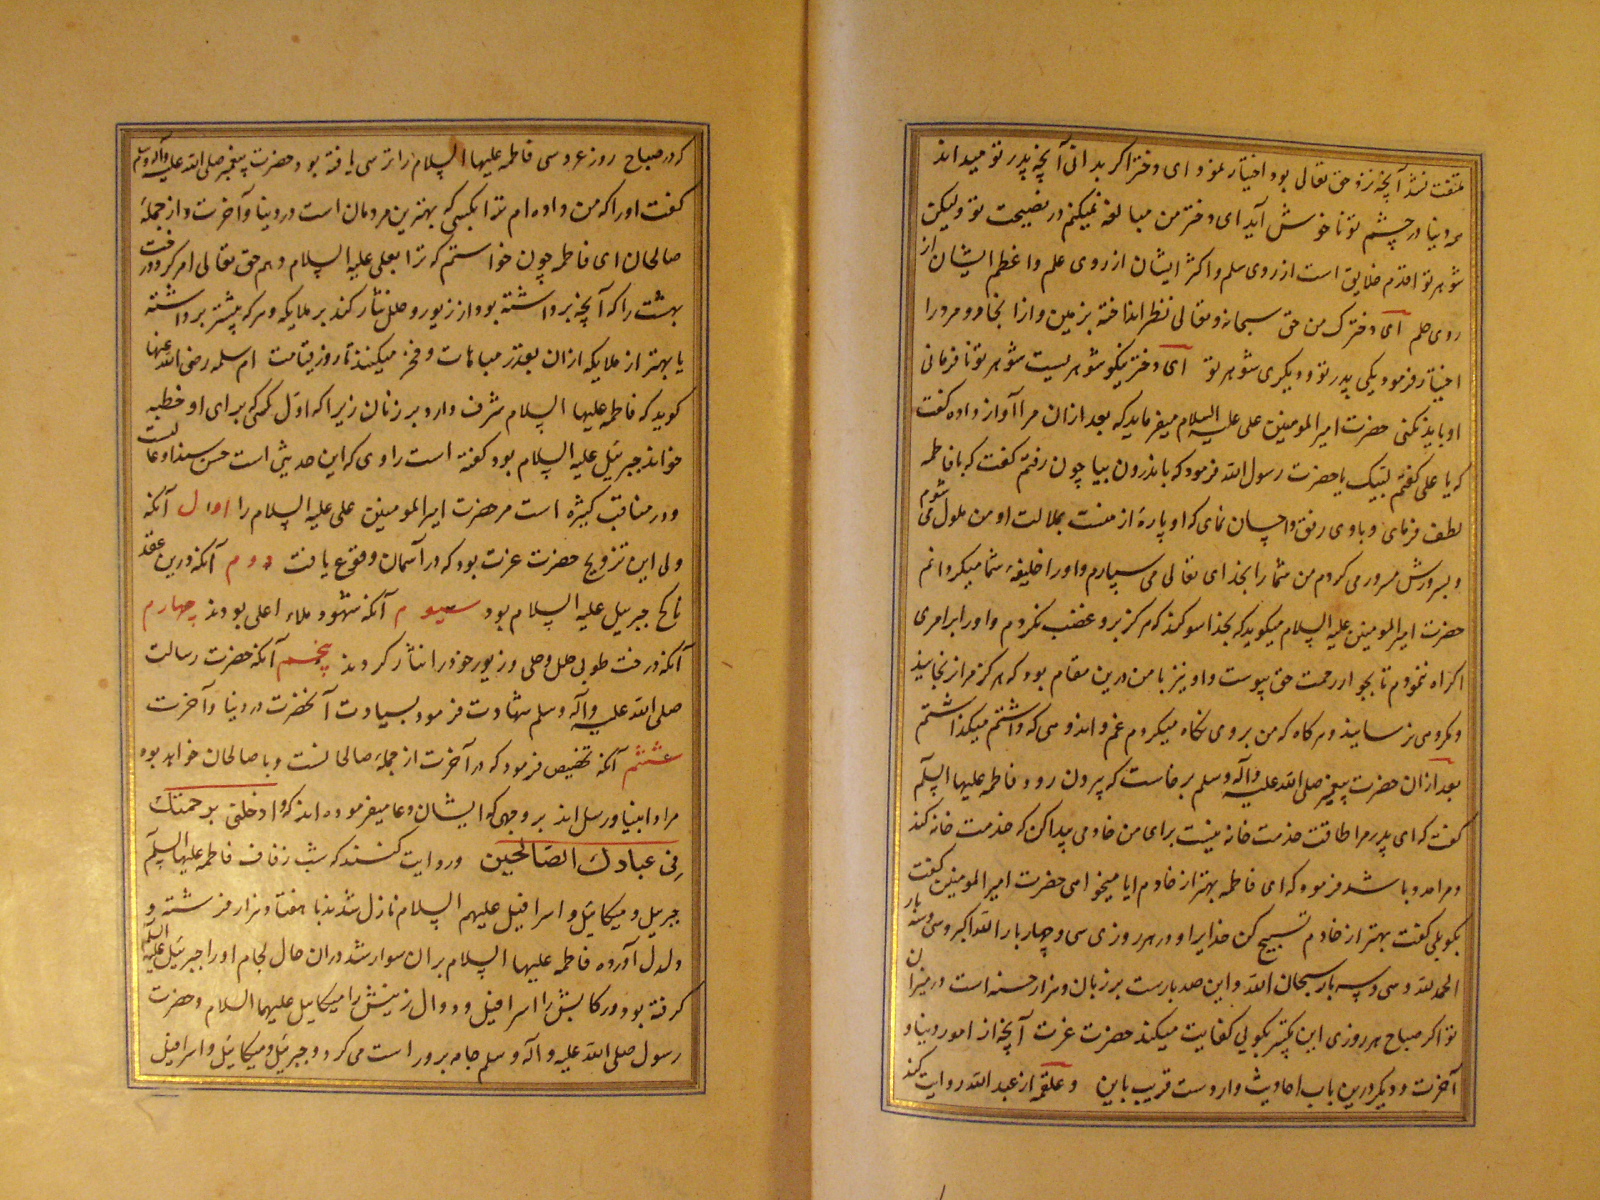 ملتفت نشد آنچه نزد حق تعالی بود اختیار نمود ای دختر اگر بدانی آنچه پدر تو میداند
همه دنیا در چشم تو ناخوش آید ای دختر من مبالغه نمیکنم در نصیحت تو ولیکن
شوهر تو اقدم خلایق است از روی سلم و اکثر ایشان از روی علم و اعظم ایشان از
روی حلم ای دخترک من حق سبحانه و تعالی نظر انداخته بزمین و از انجا دو مرد را
اختیار فرمود یکی پدر تو و دیگری شوهر تو ای دختر نیکو شوهریست شوهر تو نافرمانی
او باید نکنی حضرت امیرالمومنین علی علیه السلام میفرماید که بعد ازان مرا آواز داده گفت
که یا علی گفتم لبیک یا حضرت رسول الله فرمود که باندرون بیا چون رفتم گفت که با فاطمه
لطف فرمای و باوی رفق و احسان نمای که او پارهٔ از منست بملالت او من ملول می شوم
و بسرورش مسرور می کردم من شما را بخدای تعالی می سپارم و او را خلیفهٔ شما میکردانم
حضرت امیرالمومنین علیه السلام میکوید که بخدا سوکند که هرگز برو غضب نکردم و او را بر امری
اکراه ننمودم تا بجوار رحمت حق پیوست و او نیز با من درین مقام بود که هرکز مرا نرنجانید
و مکروهی نرسانید و هرگاه که من بروی نکاه میکردم غم و اندوهی که داشتم میکذاشتم
بعد ازان حضرت پیغمبر صلی الله علیه وآله وسلم برخاست که بیرون رود فاطمه علیها السلم
کفت که ای پدر مرا طاقت خدمت خانه نیست برای من خادمی پیدا کن که خدمت خانه کند
و مرا مدد باشد فرمود که ای فاطمه بهتر از خادم آیا میخواهی حضرت امیرالمومنین کفت
بکو بلی کفت بهتر از خادم تسبیح کن خدایرا و در هر روزی سی و چهار بار الله اکبر و سی و سه بار
الحمد لله و سی و سه بار سبحان الله و این صد بارست بر زبان و هزار حسنه است در میزان
تو اکر صباح هر روزی این بکثر بکویی کفایت میکند حضرت عزت آنچه از امور دنیا و
آخرت و دیکر درین باب احادیث واردست قریب باین و علقمه از عبد الله روایت کند
که در صباح روز عروسی فاطمه علیها السلام را ترسی یافته بود حضرت پیغمبر صلی الله علیه وآله وسلم
کفت او را که من داده ام ترا بکسی که بهترین مردمان است در دنیا و آخرت و از جملهٔ
صالحان ای فاطمه چون خواستم که ترا بعلی علیه السلام دهم حق تعالی امر کرد درخت
بهشت را که آنچه برداشته بود از زیور و حلل نثار کند بر ملایکه و هر که بیشتر برداشته
یا بهتر از ملایکه ازان بعد در مباهات و فخر میکنند تا روز قیامت ام سلمه رضی الله عنها
کوید که فاطمه علیها السلام شرف دارد بر زنان زیرا که اول کسی که برای او خطبه
خواند جبرئیل علیه السلام بود کفته است راوی که این حدیثی است حسن سندا و عالیست
و در مناقب کثیره است مر حضرت امیرالمومنین علی علیه السلام را اول آنکه
ولی این تزویج حضرت عزت بود که در آسمان وقوع یافت دوم آنکه درین عقد
ناکح جبرئیل علیه السلام بود سیوم آنکه شهود ملاء اعلی بودند چهارم
آنکه درخت طوبی حلل و حلی و زیور خود را نثار کردند پنجم آنکه حضرت رسالت
صلی الله علیه وآله وسلم شهادت فرمود بسیادت آنحضرت در دنیا و آخرت
ششم آنکه تخصیص فرمود که در آخرت از جملهٔ صالحانست و با صالحان خواهد بود
مراد انبیا و رسل اند بر وجهی که ایشان دعا میفرموده اند که وادخلنی برحمتك
فی عبادك الصالحین و روایت کنند که شب زفاف فاطمه علیها السلم
جبرئیل و میکائیل و اسرافیل علیهم السلام نازل شدند با هفتاد هزار فرشته و
دلدل آورده فاطمه علیها السلام بران سوار شد دران حال لجام او را جبرئیل علیه السلم
کرفته بود و رکابش را اسرافیل و دوال زینش را میکاییل علیهما السلام و حضرت
رسول صلی الله علیه وآله وسلم جامه برو راست می کرد و جبرئیل و میکائیل و اسرافیل